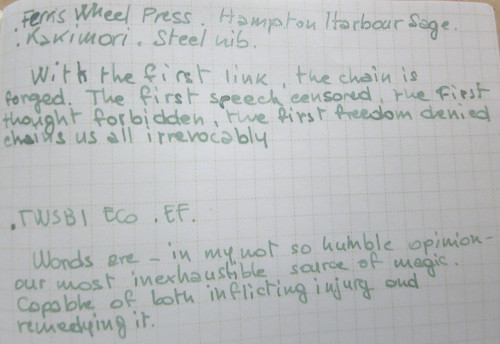 . Ferris Wheel Press. Hampton Harbour Sage.
. Kakimori. Steel nib.
With the first link, the chain is
forged. The first speech censored, the first
thought forbidden, the first freedom denied
chains us all irrevocably
. TWSBI Eco . EF.
Words are - in my not so humble opinion -
our most inexhaustible source of magic.
Capable of both inflicting injury and
remedying it.